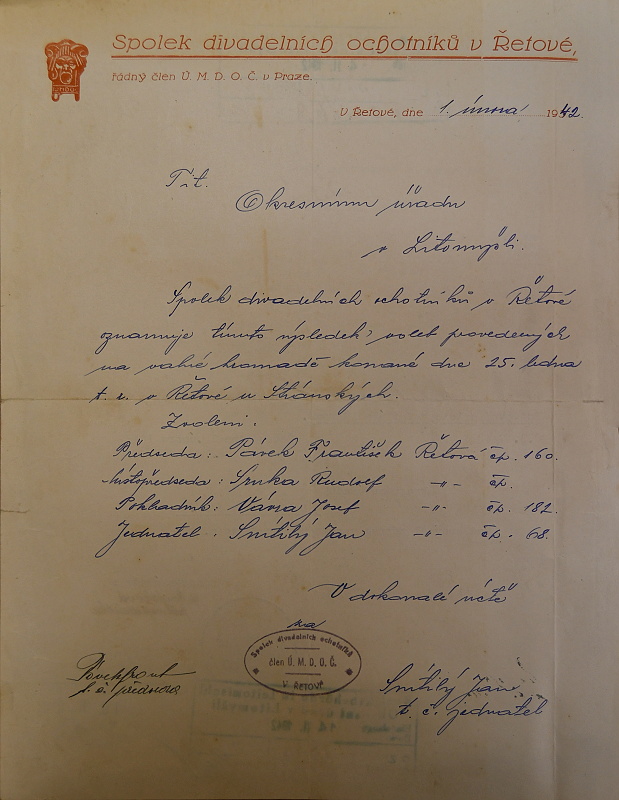 Spolek divadelních ochotníků v Řetové,
řádný člen Ú. M. D. O. Č. v Praze.
V Řetové, dne 1. února 1942.
Tit.
Okresnímu úřadu
v Litomyšli.
Spolek divadelních ochotníků v Řetové
oznamuje tímto výsledek voleb provedených
na valné hromadě konané dne 25. ledna
t. r. v Řetové u Stránských.
Zvoleni.
Předseda: Pávek František Řetová čp. 160.
místopředseda: Srnka Rudolf -"- čp.
Pokladník: Vávra Josef -"- čp. 182.
Jednatel. Smítilý Jan -"- čp. 68.
V dokonalé úctě
za
Spolek divadelních ochotníků
člen Ú. M. D. O. Č.
V ŘETOVÉ
t. č. předseda
Smítilý Jan
t. č. jednatel